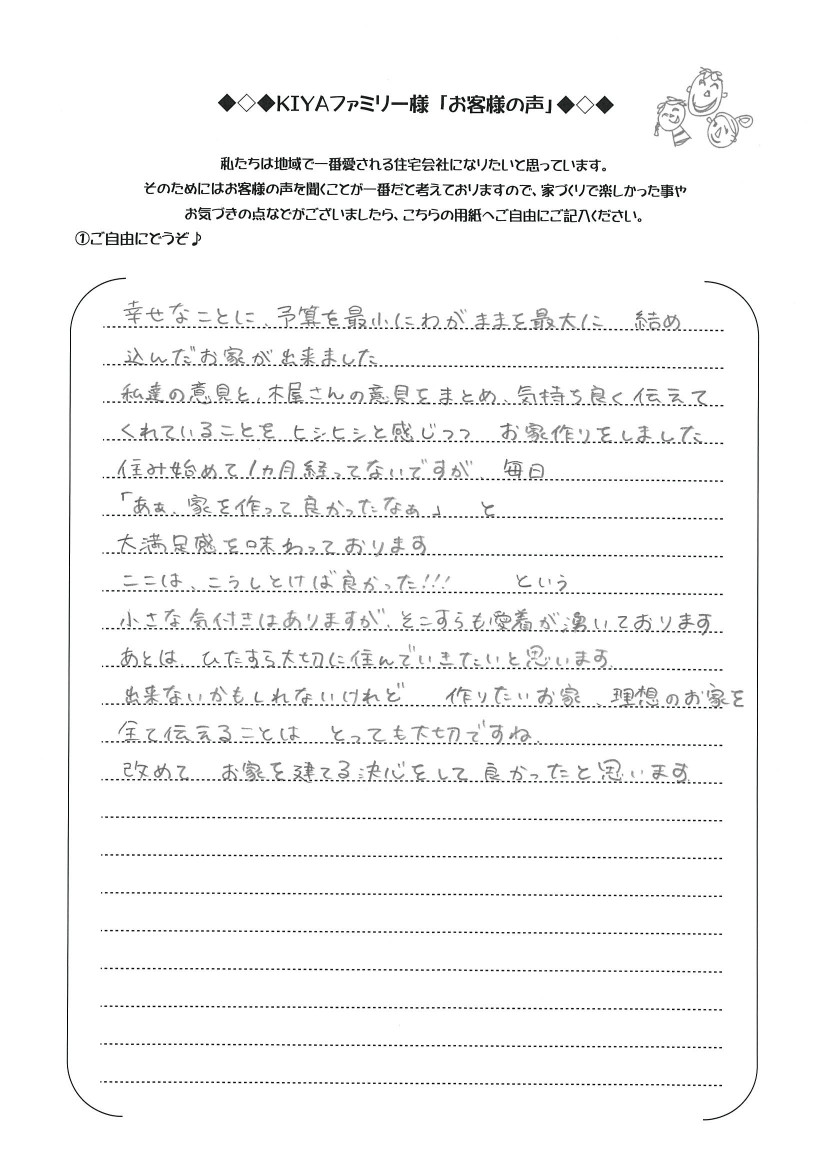 ◆◇◆KIYAファミリー様「お客様の声」◆◇◆
私たちは地域で一番愛される住宅会社になりたいと思っています。
そのためにはお客様の声を聞くことが一番だと考えておりますので、家づくりで楽しかった事や
お気づきの点などがございましたら、こちらの用紙へご自由にご記入ください。
①ご自由にどうぞ♪
幸せなことに、予算を最小にわがままを最大に 結め
込んだお家が出来ました
私達の意見と、木屋さんの意見をまとめ、気持ち良く伝えて
くれていることを ヒシヒシと感じつつ お家作りをしました
住み始めて1カ月経ってないですが、毎日
「あぁ、家を作って良かったなぁ」 と
大満足感を味わっております
ここは、こうしとけば良かった!!! という
小さな気付きはありますが、そこすらも愛着が湧いております
あとは ひたすら大切に住んでいきたいと思います
出来ないかもしれないけれど 作りたいお家、理想のお家を
全て伝えることは とっても大切ですね。
改めて お家を建てる決心をして良かったと思います